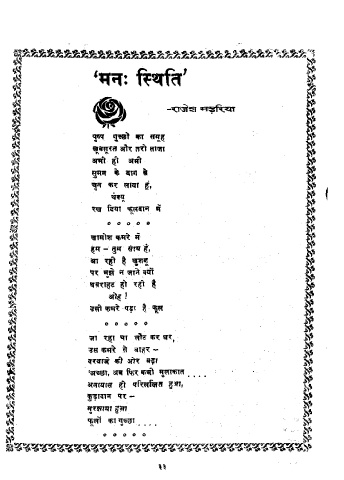 'मनः स्थिति'
-राजेश भड़रिया
पुष्प गुच्छों का समूह
खूबसूरत और तरो ताजा
अभी ही अभी
सुमन के बाग से
चुन कर लाया हूं,
रख दिया फूलदान में
० ० ० ० ०
खामोश कमरे में
हम - तुम साथ हैं,
आ रही है खुशबू
पर मुझे न जाने क्यों
घबराहट हो रही है
ओह !
उसी कमरे पड़ा है फूल
० ० ० ० ०
जा रहा था लौट कर घर,
उस कमरे से बाहर -
दरवाजे की ओर बढ़ा
'अच्छा, अब फिर कभी मुलाकात ....
अनायास ही परिलक्षित हुआ,
कूड़ादान पर -
मुरझाया हुआ
फूलों का गुच्छा ....
० ० ० ० ०
११